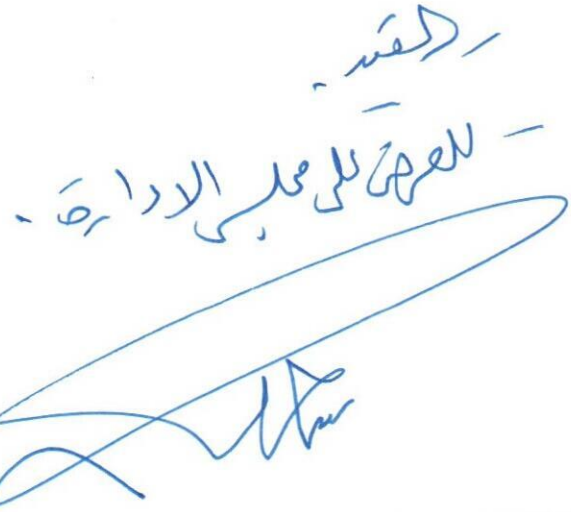 - القيد.
- للعرض على مجلس الادارة.